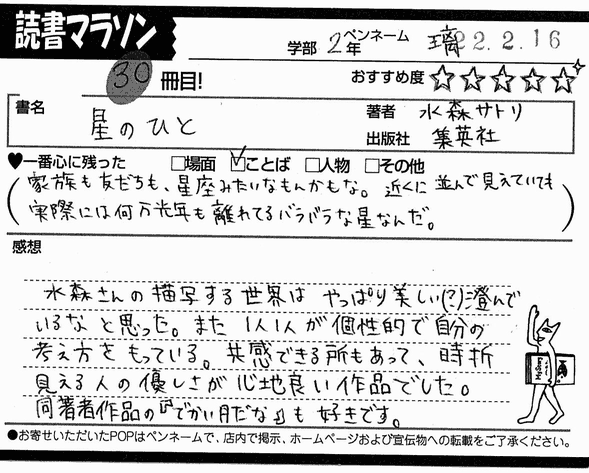 読書マラソン
30 冊目!
学部 2年 ペンネーム 璃 22.2.16
おすすめ度 ☆☆☆☆☆
書名 星のひと
著者 水森サトリ
出版社 集英社
♥一番心に残った □場面 ☑ことば □人物 □その他
(家族も友だちも、星座みたいなもんかもな。近くに並んで見えていても
実際には何万光年も離れてるバラバラな星なんだ。)
感想
水森さんの描写する世界は やっぱり美しい(?)澄んで
いるなと思った。また1人1人が個性的で自分の
考え方をもっている。共感できる所もあって、時折
見える人の優しさが心地良い作品でした。
同著者作品の『でかい月だな』も好きです。
●お寄せいただいたPOPはペンネームで、店内で掲示、ホームページおよび宣伝物への転載をご了承ください。